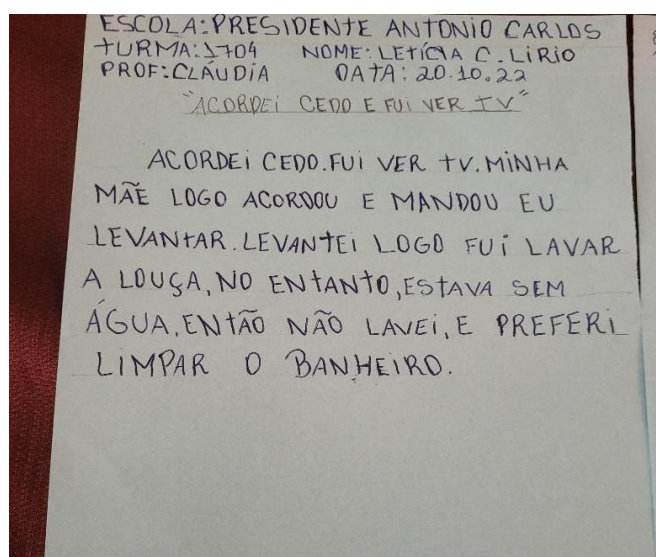 ESCOLA: PRESIDENTE ANTONIO CARLOS
TURMA: 1704 NOME: LETÍCIA C. LIRIO
PROF: CLÁUDIA DATA: 20.10.22
"ACORDEI CEDO E FUI VER TV"
ACORDEI CEDO. FUI VER TV. MINHA
MÃE LOGO ACORDOU E MANDOU EU
LEVANTAR. LEVANTEI LOGO FUI LAVAR
A LOUÇA, NO ENTANTO, ESTAVA SEM
ÁGUA, ENTÃO NÃO LAVEI, E PREFERI
LIMPAR O BANHEIRO.